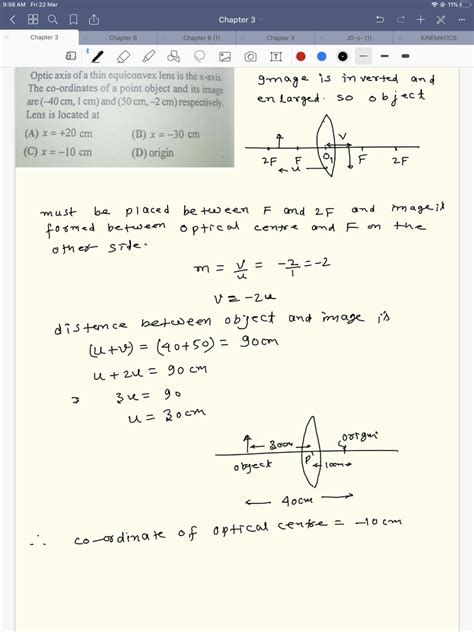 9:56 AM Fri 22 Mar
11%
Chapter 3
Chapter 3
Chapter 6
Chapter 6 (1)
Chapter 3
JD-s- (1)
KINEMATICS
Optic axis of a thin equiconvex lens is the x-axis.
The co-ordinates of a point object and its image
are (–40 cm, 1 cm) and (50 cm, –2 cm) respectively.
Lens is located at
(A) x = +20 cm (B) x = –30 cm
(C) x = –10 cm (D) origin
Image is inverted and
enlarged. so object
2F F O1 V F 2F
u
must be placed between F and 2F and image is
formed between optical centre and F on the
other side.
m = v/u = -2/1 = -2
v = -2u
distance between object and image is
(u+v) = (40+50) = 90cm
u + 2u = 90 cm
3u = 90
u = 30cm
30cm
origin
object
P
10cm
40cm
∴ co-ordinate of optical centre = -10 cm